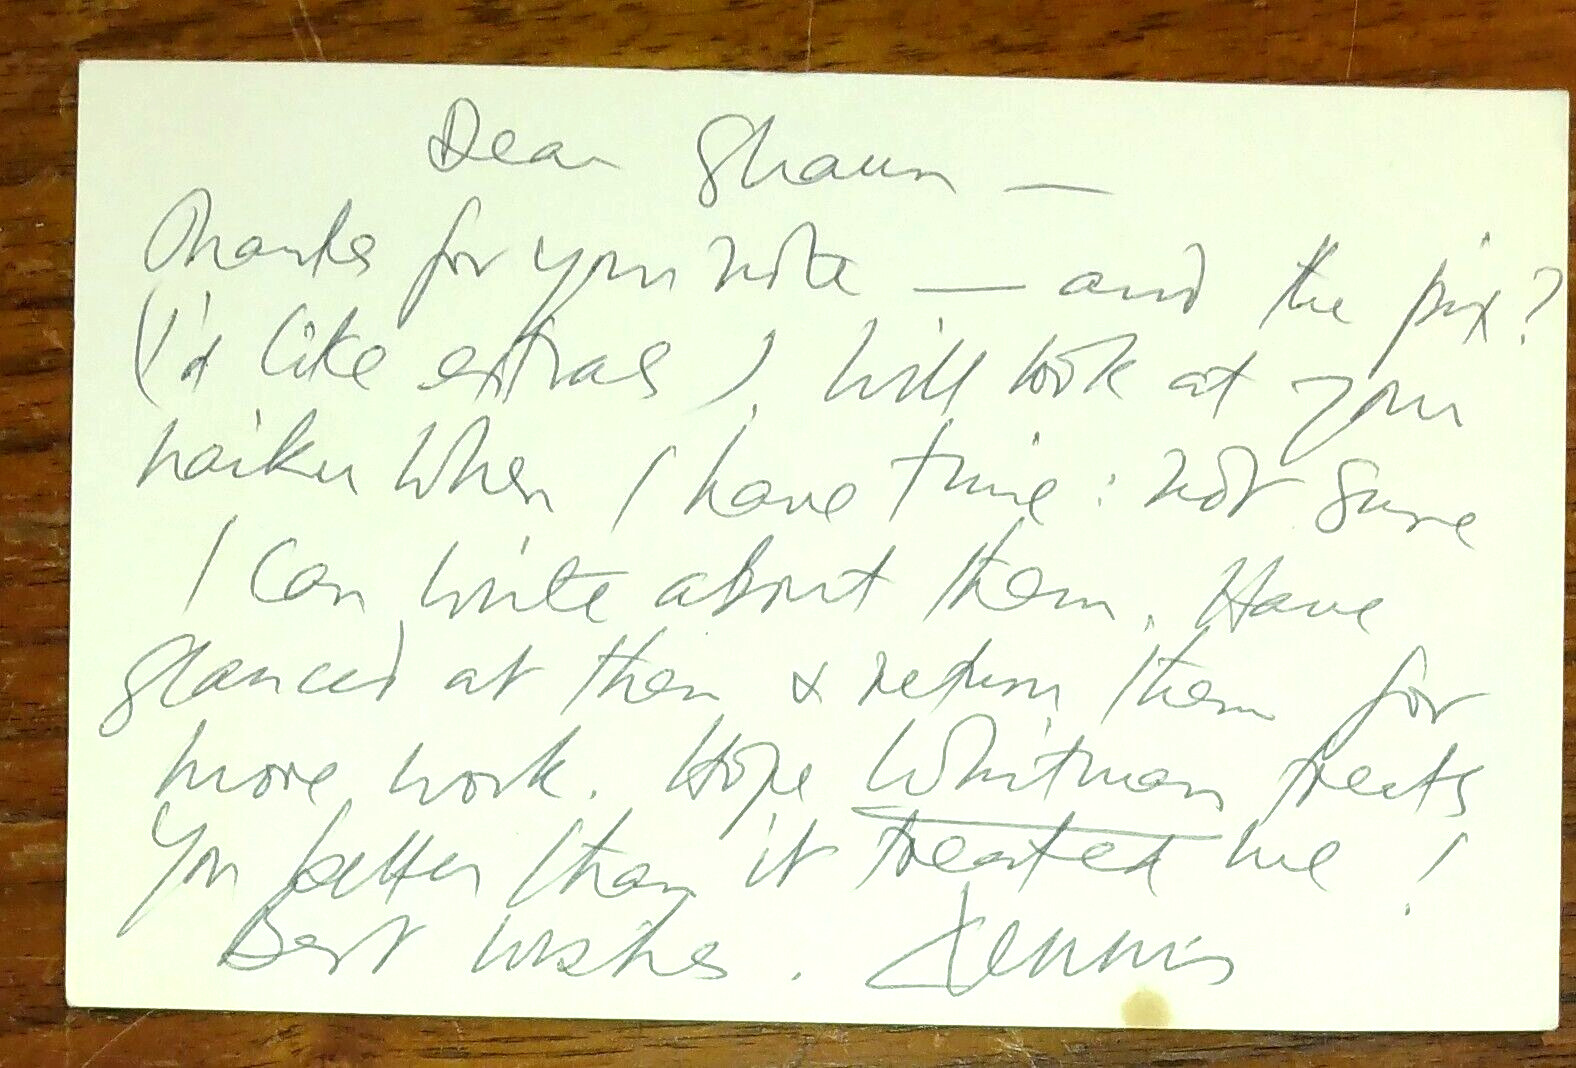 Dear Shaun —
Thanks for your note — and the pix?
(I'd like extras). Will look at your
haiku when I have time: not sure
I can write about them. Have
glanced at them & return them for
more work. Hope Whitman treats
you better than it treated me!
Best wishes. Dennis